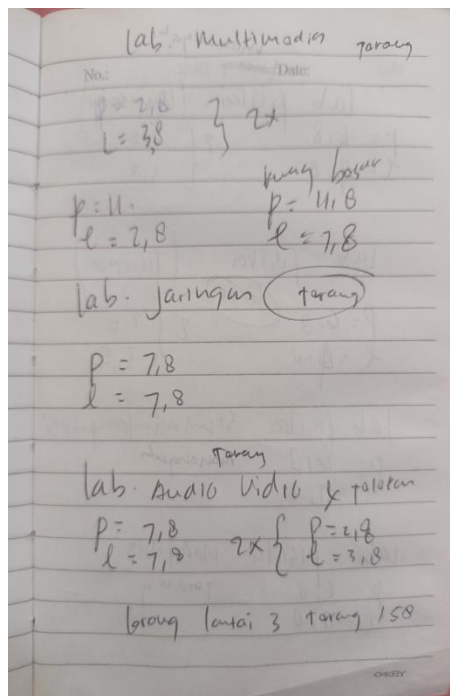 Lab. Multimedia terang
No.: Date:
p = 2,8
L = 3,8 } 2x
ruang besar
p = 11. p = 11,8
l = 2,8 l = 7,8
Lab. Jaringan terang
p = 7,8
l = 7,8
terang
Lab. Audio Vidio
p = 7,8 2x { p = 2,8
l = 7,8 l = 3,8
lorong lantai 3 terang 158